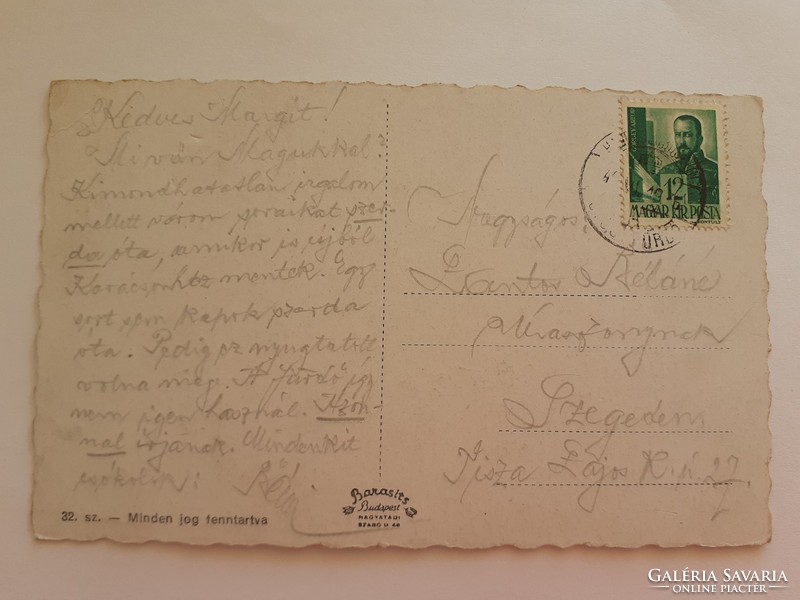 Kedves Margit!
Mi van Magukkal?
Kimondhatatlan izgalom
mellett várom soraikat szer-
da óta, amikor is újból
Karácsonhoz mentek. Egy
sort sem kapok szerda
óta. Pedig ez nyugtatott
volna meg. A fürdő így
nem igen használ. Azon-
nal írjanak. Mindenkit
csókolok: Béla
32. sz. — Minden jog fenntartva
Barasits
Budapest
NAGYATÁDI
SZABÓ U. 46
12
MAGYAR KIR. POSTA
Nagyságos
Kantor Béláné
Úrasszonynak
Szegeden
Tisza Lajos K. ú. 27.
GALÉRIA SAVARIA
ONLINE PIACTÉR